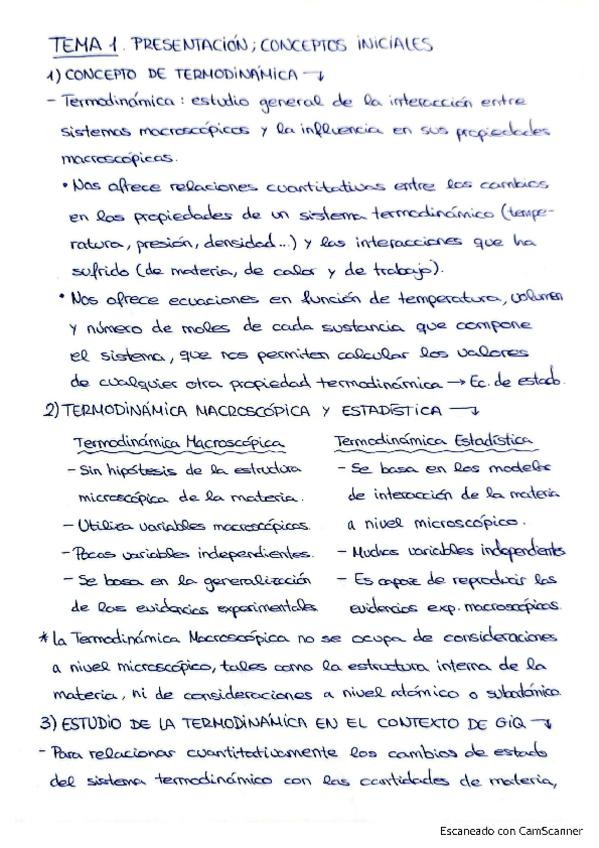 TEMA 1. PRESENTACIÓN; CONCEPTOS INICIALES
1) CONCEPTO DE TERMODINÁMICA →
- Termodinámica: estudio general de la interacción entre
sistemas macroscópicos y la influencia en sus propiedades
macroscópicas.
• Nos ofrece relaciones cuantitativas entre los cambios
en las propiedades de un sistema termodinámico (tempe-
ratura, presión, densidad...) y las interacciones que ha
sufrido (de materia, de calor y de trabajo).
• Nos ofrece ecuaciones en función de temperatura, volumen
y número de moles de cada sustancia que compone
el sistema, que nos permiten calcular los valores
de cualquier otra propiedad termodinámica → Ec. de estado.
2) TERMODINÁMICA MACROSCÓPICA Y ESTADÍSTICA →
Termodinámica Macroscópica
- Sin hipótesis de la estructura
microscópica de la materia.
- Utiliza variables macroscópicas.
- Pocas variables independientes.
- Se basa en la generalización
de las evidencias experimentales
Termodinámica Estadística
- Se basa en los modelos
de interacción de la materia
a nivel microscópico.
- Muchas variables independients
- Es capaz de reproducir las
evidencias exp. macroscópicas.
* La Termodinámica Macroscópica no se ocupa de consideraciones
a nivel microscópico, tales como la estructura interna de la
materia, ni de consideraciones a nivel atómico o subatómico.
3) ESTUDIO DE LA TERMODINÁMICA EN EL CONTEXTO DE GIQ →
- Para relacionar cuantitativamente los cambios de estado
del sistema termodinámico con las cantidades de materia,
Escaneado con CamScanner